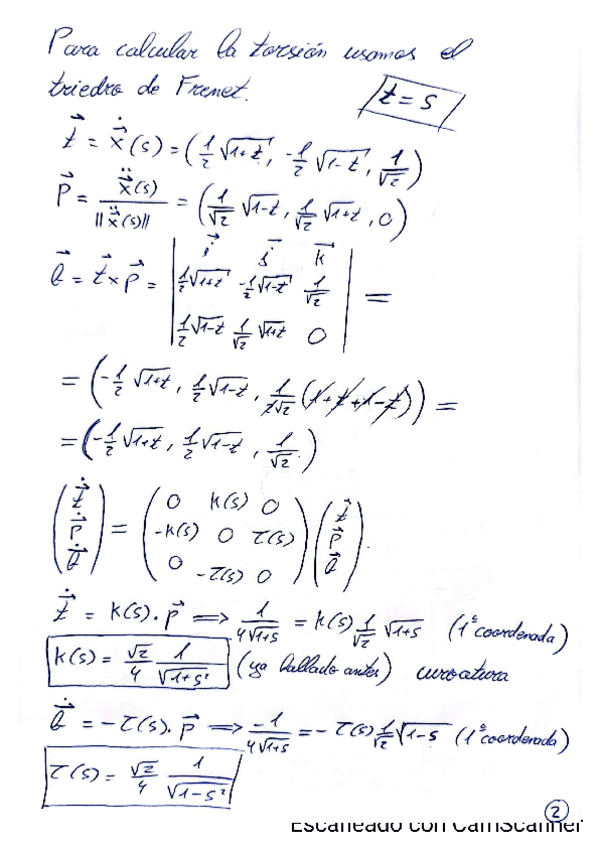 Para calcular la torsión usamos el
triedro de Frenet. t = s
\vec{t} = \dot{\vec{x}}(s) = (1/2 √(1+t), -1/2 √(1-t), 1/√2)
\vec{p} = \ddot{\vec{x}}(s) / ||\ddot{\vec{x}}(s)|| = (1/√2 √(1-t), 1/√2 √(1+t), 0)
\vec{b} = \vec{t} x \vec{p} = | \vec{i} \vec{j} \vec{k} ; 1/2 √(1+t) -1/2 √(1-t) 1/√2 ; 1/2 √(1-t) 1/√2 √(1+t) 0 | =
= (-1/2 √(1+t), 1/2 √(1-t), 1/(2√2) (1+t+1-t)) =
= (-1/2 √(1+t), 1/2 √(1-t), 1/√2)
(\dot{\vec{t}} ; \dot{\vec{p}} ; \dot{\vec{b}}) = (0 K(s) 0 ; -K(s) 0 τ(s) ; 0 -τ(s) 0) (\vec{t} ; \vec{p} ; \vec{b}).
\dot{\vec{t}} = K(s) · \vec{p} ⟹ 1/(4√(1+s)) = K(s) 1/√2 √(1+s) (1ª coordenada)
K(s) = √2/4 1/√(1+s²) (ya hallado antes) curvatura
\dot{\vec{b}} = -τ(s) · \vec{p} ⟹ -1/(4√(1+s)) = -τ(s) 1/√2 √(1-s) (1ª coordenada)
τ(s) = √2/4 1/√(1-s²)
2
Escaneado con CamScanner